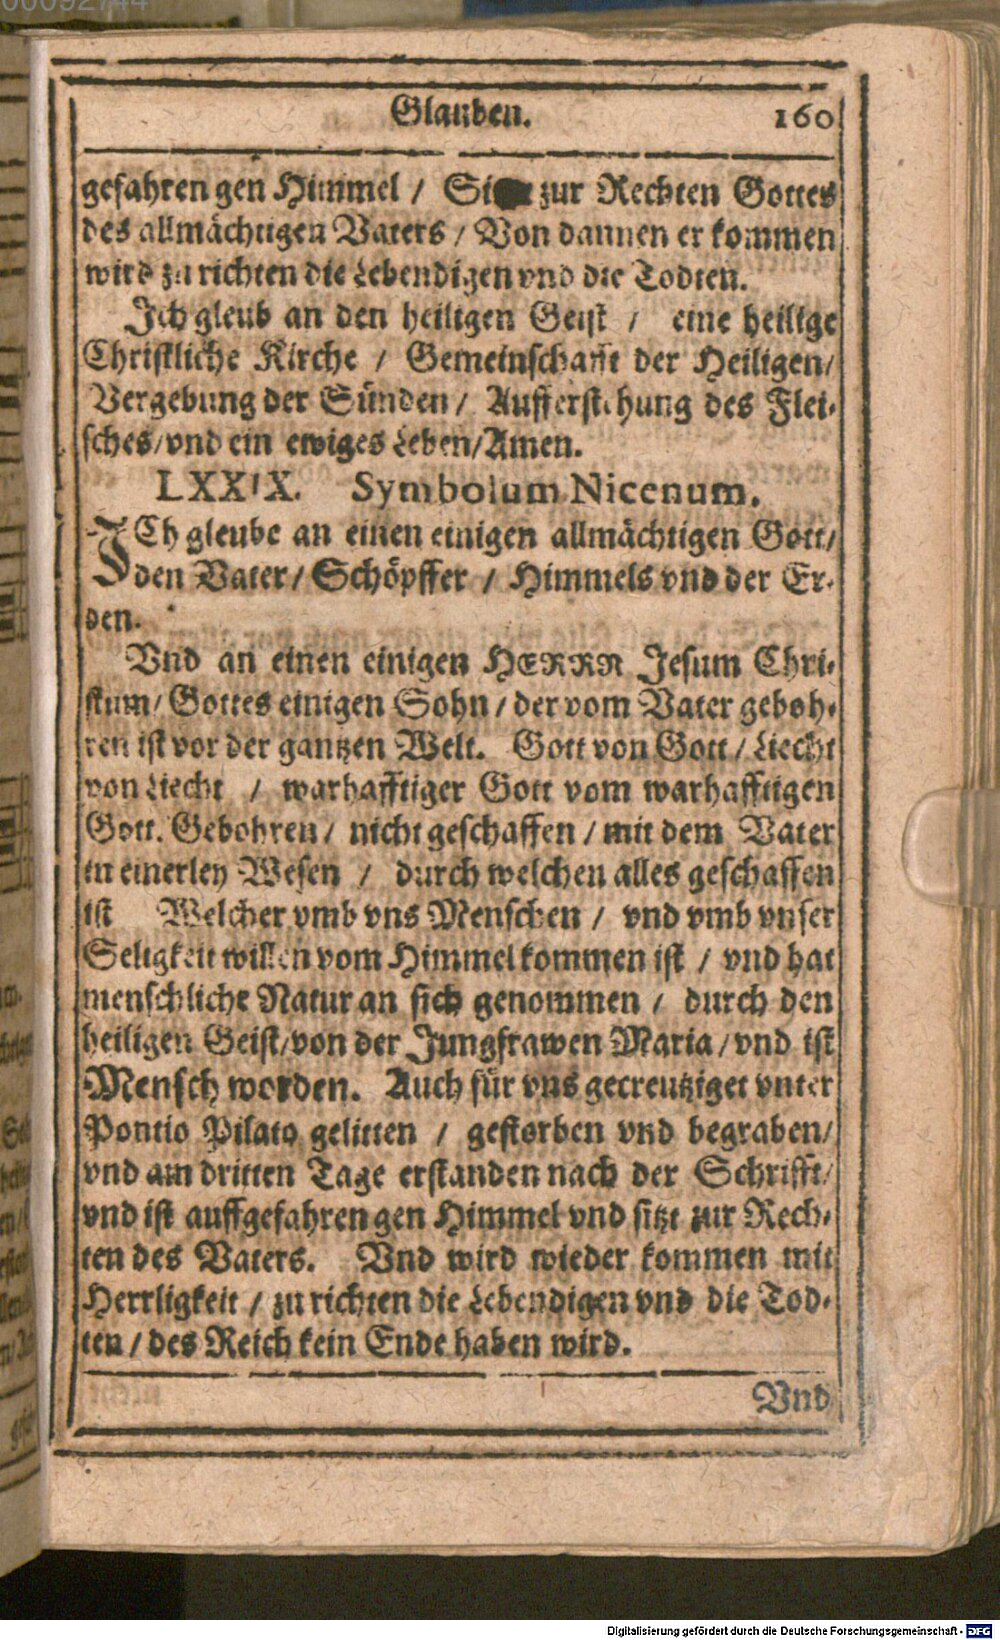 00092744
Glauben. 160
gefahren gen Himmel / zur Rechten Gottes
des allmächtigen Vaters / Von dannen er kommen
wird zu richten die Lebendigen vnd die Todten.
Ich gleub an den heiligen Geist / eine heilige
Christliche Kirche / Gemeinschafft der Heiligen/
Vergebung der Sünden / Aufferstehung des Flei-
sches/vnd ein ewiges Leben/Amen.
LXXIX. Symbolum Nicenum.
ICh gleube an einen einigen allmächtigen Gott/
den Vater / Schöpffer / Himmels vnd der Er-
den.
Vnd an einen einigen HERRN Jesum Chri-
stum/ Gottes einigen Sohn / der vom Vater geboh-
ren ist vor der gantzen Welt. Gott von Gott / Liecht
von Liecht / warhafftiger Gott vom warhafftigen
Gott. Gebohren / nicht geschaffen / mit dem Vater
in einerley Wesen / durch welchen alles geschaffen
ist Welcher vmb vns Menschen / vnd vmb vnser
Seligkeit willen vom Himmel kommen ist / vnd hat
menschliche Natur an sich genommen / durch den
heiligen Geist/von der Jungfrawen Maria / vnd ist
Mensch worden. Auch für vns gecreutziget vnter
Pontio Pilato gelitten / gestorben vnd begraben/
vnd am dritten Tage erstanden nach der Schrifft/
vnd ist auffgefahren gen Himmel vnd sitzt zur Rech-
ten des Vaters. Vnd wird wieder kommen mit
Herrligkeit / zu richten die Lebendigen vnd die Tod-
ten / des Reich kein Ende haben wird.
Vnd
Digitalisierung gefördert durch die Deutsche Forschungsgemeinschaft - DFG